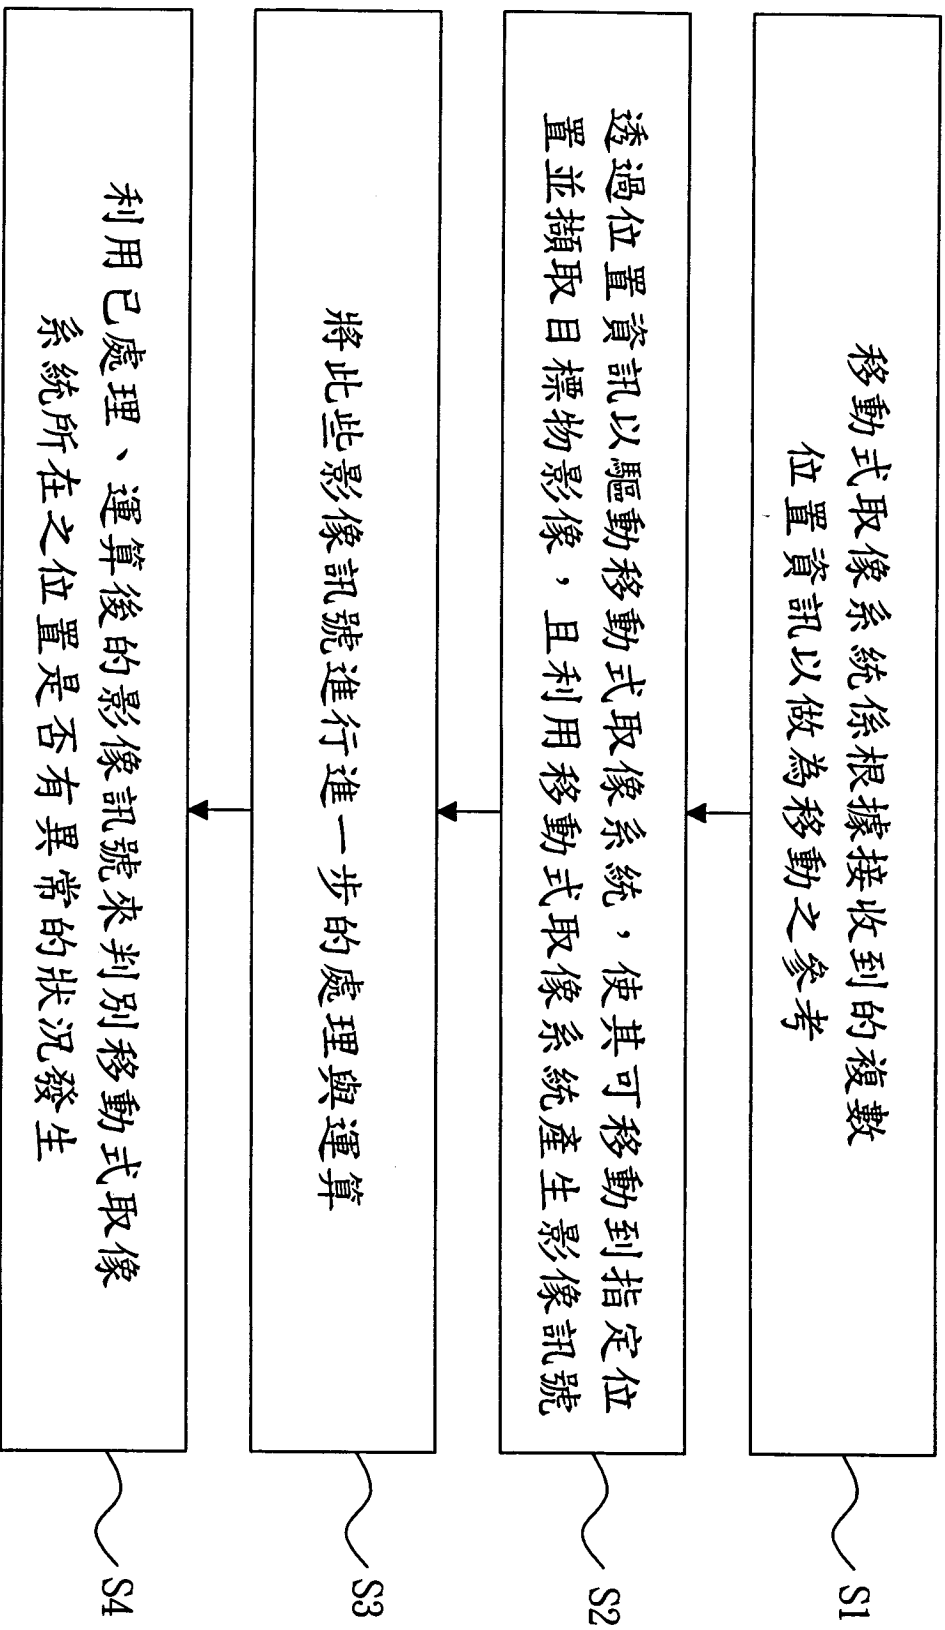 移動式取像系統係根據接收到的複數
位置資訊以做為移動之參考
S1
透過位置資訊以驅動移動式取像系統，使其可移動到指定位
置並擷取目標物影像，且利用移動式取像系統產生影像訊號
S2
將此些影像訊號進行進一步的處理與運算
S3
利用已處理、運算後的影像訊號來判別移動式取像
系統所在之位置是否有異常的狀況發生
S4